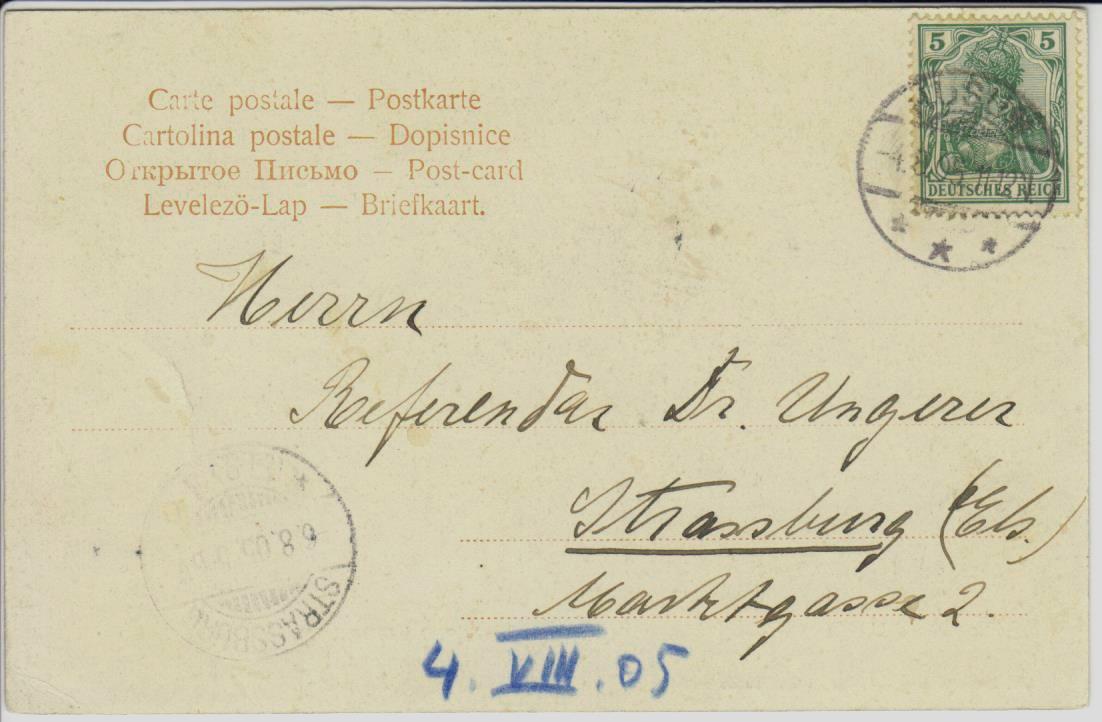 Carte postale — Postkarte
Cartolina postale — Dopisnice
Открытое Письмо — Post-card
Levelezö-Lap — Briefkaart.
5 5
DEUTSCHES REICH
Herrn
Referendar Dr. Ungerer
Strassburg (Els.)
Marktgasse 2.
6.8.05
STRASSBURG
4. VIII. 05